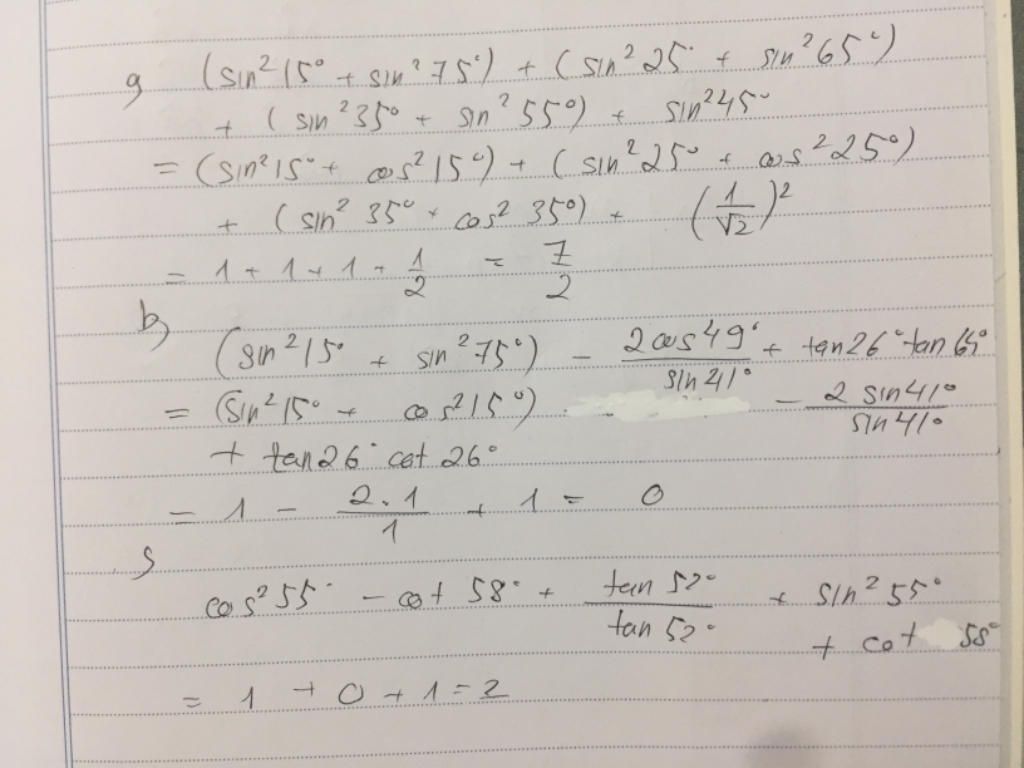 a) (sin²15° + sin²75°) + (sin²25° + sin²65°)
+ (sin²35° + sin²55°) + sin²45°
= (sin²15° + cos²15°) + (sin²25° + cos²25°)
+ (sin²35° + cos²35°) + (1/√2)²
= 1 + 1 + 1 + 1/2 = 7/2
b)
(sin²15° + sin²75°) - 2cos49°/sin41° + tan26° tan64°
= (sin²15° + cos²15°) - 2 sin41°/sin41°
+ tan26° cot26°
= 1 - 2.1/1 + 1 = 0
c)
cos²55° - cot 58° + tan 52°/tan 52° + sin²55°
+ cot 58°
= 1 + 0 + 1 = 2